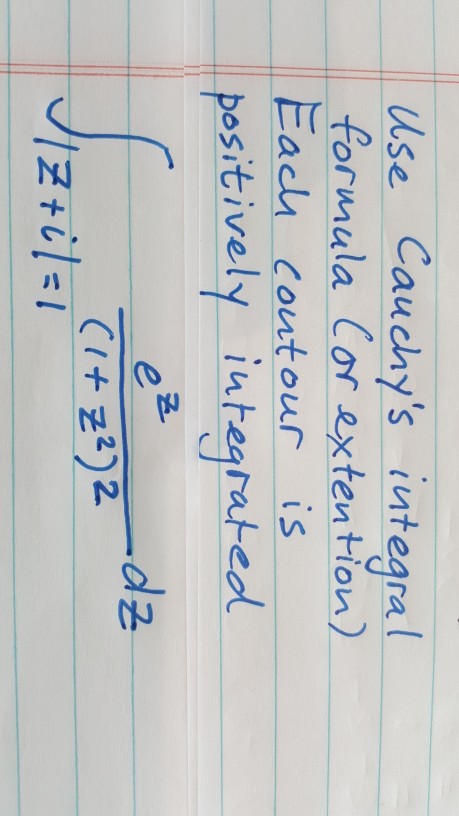 Use Cauchy's integral
formula (or extention)
Each contour is
positively integrated
∫|z+i|=1 e^z/(1+z²)² dz